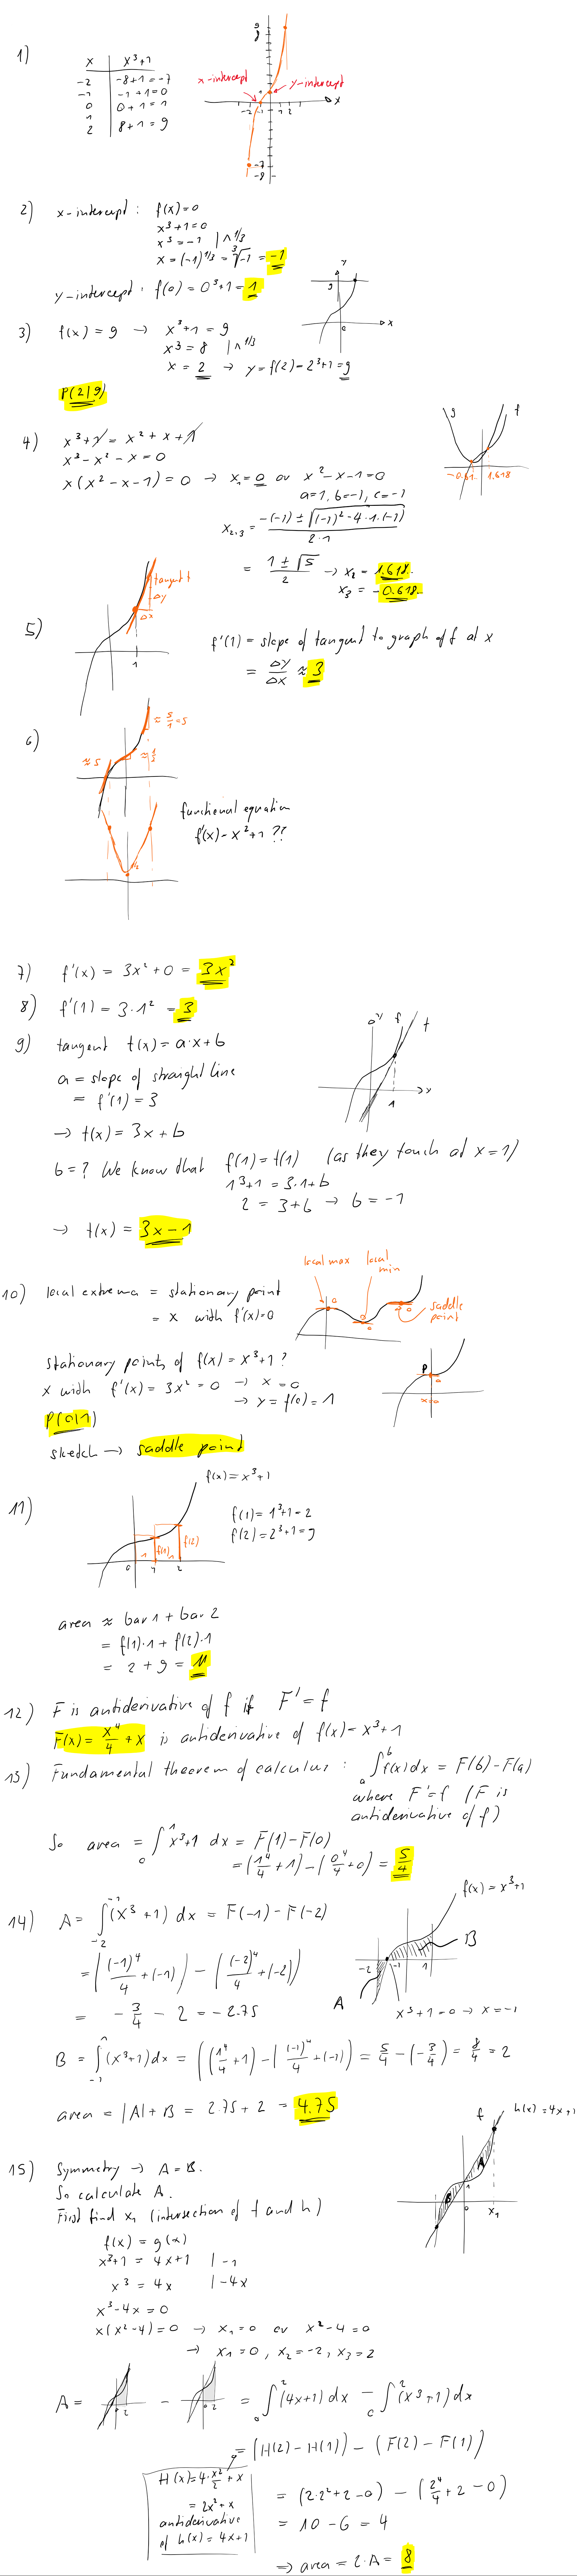 1)
x | x³+1
-2 | -8+1=-7
-1 | -1+1=0
0 | 0+1=1
1
2 | 8+1=9
9
8
x-intercept
y-intercept
x
-2 -1 1 2
-7
-8
2) x-intercept: f(x)=0
x³+1=0
x³=-1 |^1/3
x=(-1)^1/3=∛-1=-1
y-intercept: f(0)=0³+1=1
y
9
x
3) f(x)=9 → x³+1=9
x³=8 |^1/3
x=2 → y=f(2)=2³+1=9
P(2|9)
4) x³+1=x²+x+1
x³-x²-x=0
x(x²-x-1)=0 → x₁=0 or x²-x-1=0
a=1, b=-1, c=-1
x₂,₃=(-(-1)±√((-1)²-4·1·(-1)))/(2·1)
=(1±√5)/2 → x₂=1.618..
x₃=-0.618..
g f
-0.61.. 1.618
5)
tangent t
Δy
Δx
1
f'(1)=slope of tangent to graph of f at x
=Δy/Δx≈3
6)
≈5/1=5
≈5
≈1/2
functional equation
f'(x)=x²+1 ??
7) f'(x)=3x²+0=3x²
8) f'(1)=3·1²=3
9) tangent t(x)=a·x+b
a=slope of straight line
=f'(1)=3
→ t(x)=3x+b
y f t
x
1
b=? We know that f(1)=t(1) (as they touch at x=1)
1³+1=3·1+b
2=3+b → b=-1
→ t(x)=3x-1
10) local extrema = stationary point
= x with f'(x)=0
local max
local min
saddle point
stationary points of f(x)=x³+1?
x with f'(x)=3x²=0 → x=0
→ y=f(0)=1
P(0|1)
sketch → saddle point
P
x=0
11)
f(x)=x³+1
f(1)=1³+1=2
f(2)=2³+1=9
f(1) f(2)
1 1
0 1 2
area ≈ bar 1 + bar 2
=f(1)·1+f(2)·1
=2+9=11
12) F is antiderivative of f if F'=f
F(x)=x⁴/4+x is antiderivative of f(x)=x³+1
13) Fundamental theorem of calculus: ∫ₐᵇf(x)dx=F(b)-F(a)
where F'=f (F is
antiderivative of f)
So area=∫₀¹x³+1 dx=F(1)-F(0)
=(1⁴/4+1)-(0⁴/4+0)=5/4
14) A=∫₋₂⁻¹(x³+1) dx=F(-1)-F(-2)
=((-1)⁴/4+(-1))-((-2)⁴/4+(-2))
=-3/4-2=-2.75
f(x)=x³+1
B
-2 -1 1
A
x³+1=0 → x=-1
B=∫₋₁¹(x³+1)dx=((1⁴/4+1)-((-1)⁴/4+(-1))=5/4-(-3/4)=8/4=2
area=|A|+B=2.75+2=4.75
15) Symmetry → A=B.
So calculate A.
First find x₁ (intersection of f and h)
f(x)=g(x)
x³+1=4x+1 |-1
x³=4x |-4x
x³-4x=0
x(x²-4)=0 → x₁=0 or x²-4=0
→ x₁=0, x₂=-2, x₃=2
f
h(x)=4x+1
A
B
1
0
x₁
A= 2 - 2 =∫₀²(4x+1)dx-∫₀²(x³+1)dx
=(H(2)-H(1))-(F(2)-F(1))
H(x)=4·x²/2+x
=2x²+x
antiderivative
of h(x)=4x+1
=(2·2²+2-0)-(2⁴/4+2-0)
=10-6=4
⇒ area=2·A=8